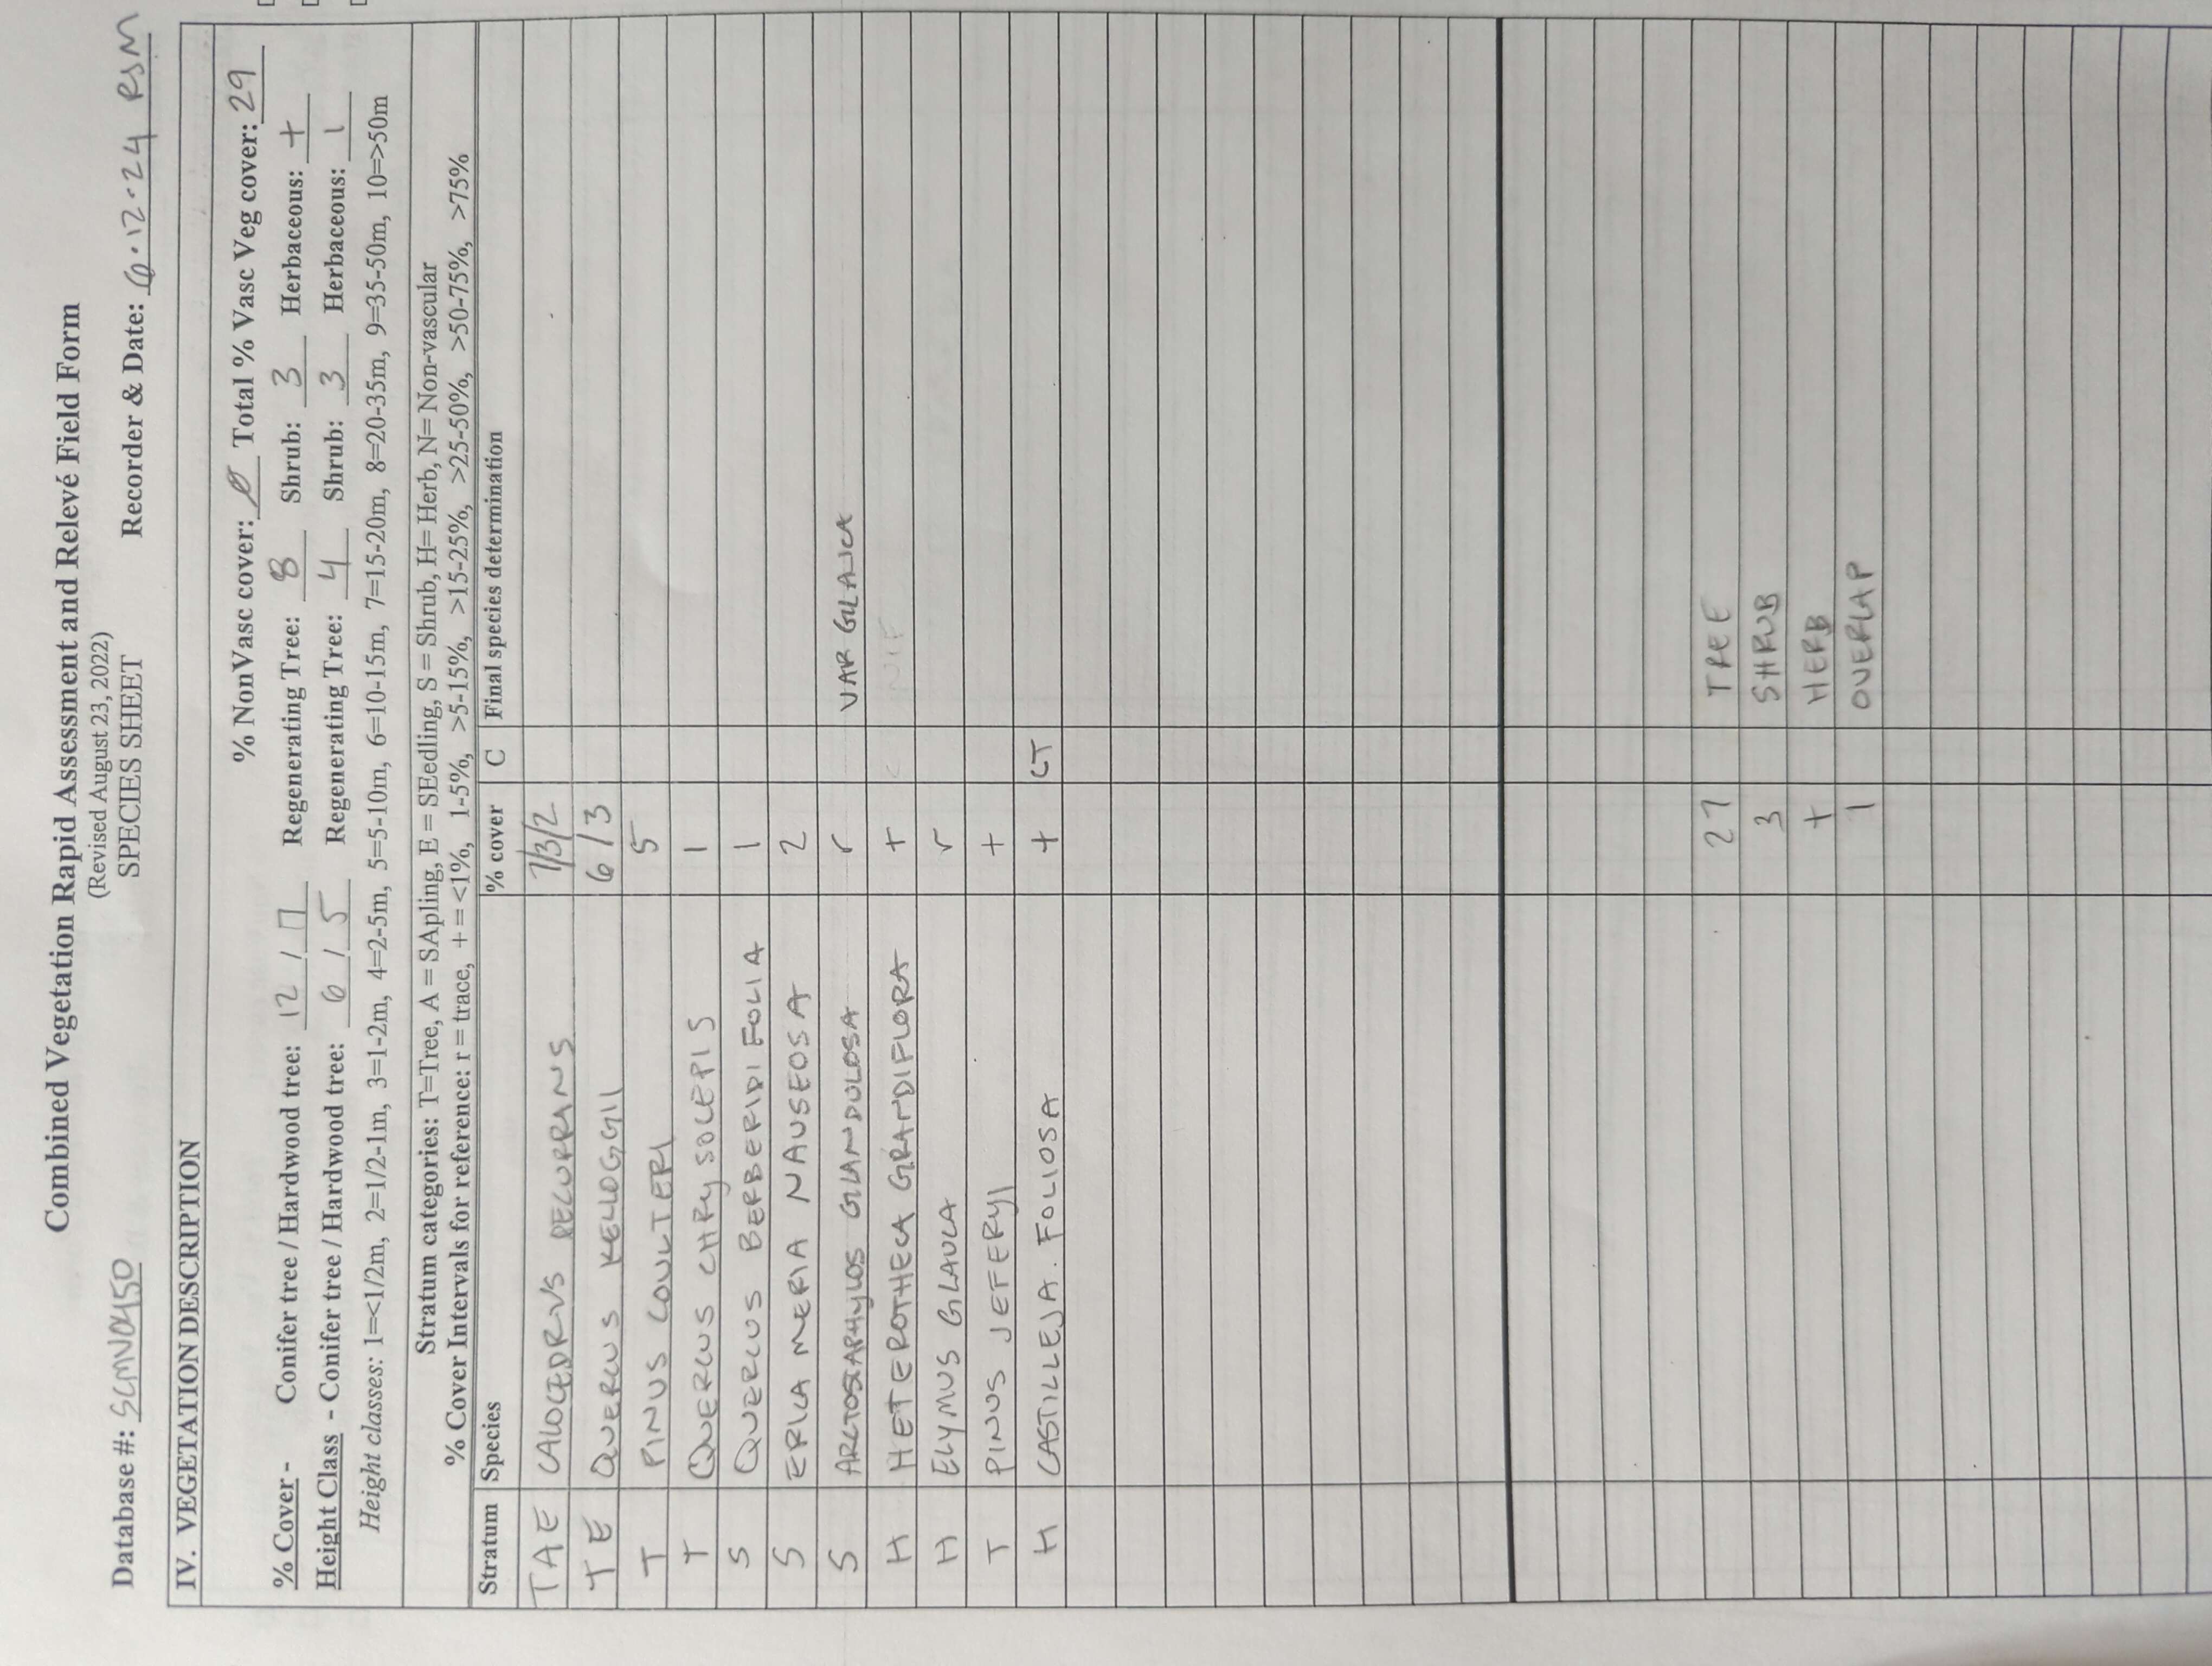 Combined Vegetation Rapid Assessment and Relevé Field Form
(Revised August 23, 2022)
SPECIES SHEET
Database #: SCMV0450 Recorder & Date: 6·12·24 RSM
IV. VEGETATION DESCRIPTION
% NonVasc cover: Ø Total % Vasc Veg cover: 29
% Cover - Conifer tree / Hardwood tree: 12 / 17 Regenerating Tree: 8 Shrub: 3 Herbaceous: +
Height Class - Conifer tree / Hardwood tree: 6 / 5 Regenerating Tree: 4 Shrub: 3 Herbaceous: 1
Height classes: 1=<1/2m, 2=1/2-1m, 3=1-2m, 4=2-5m, 5=5-10m, 6=10-15m, 7=15-20m, 8=20-35m, 9=35-50m, 10=>50m
Stratum categories: T=Tree, A = SApling, E = SEedling, S = Shrub, H= Herb, N= Non-vascular
% Cover Intervals for reference: r = trace, + = <1%, 1-5%, >5-15%, >15-25%, >25-50%, >50-75%, >75%
Stratum Species % cover C Final species determination
TAE CALOCEDRUS DECURRANS 7/3/2
TE QUERCUS KELLOGGII 6/3
T PINUS COULTERI 5
T QUERCUS CHRYSOLEPIS 1
S QUERCUS BERBERIDIFOLIA 1
S ERICA MERIA NAUSEOSA 2
S ARCTOSTAPHYLOS GLANDULOSA r VAR GLAUCA
H HETEROTHECA GRANDIFLORA +
H ELYMUS GLAUCA r
T PINUS JEFERYI +
H CASTILLEJA. FOLIOSA + CT
27 TREE
3 SHRUB
+ HERB
1 OVERLAP